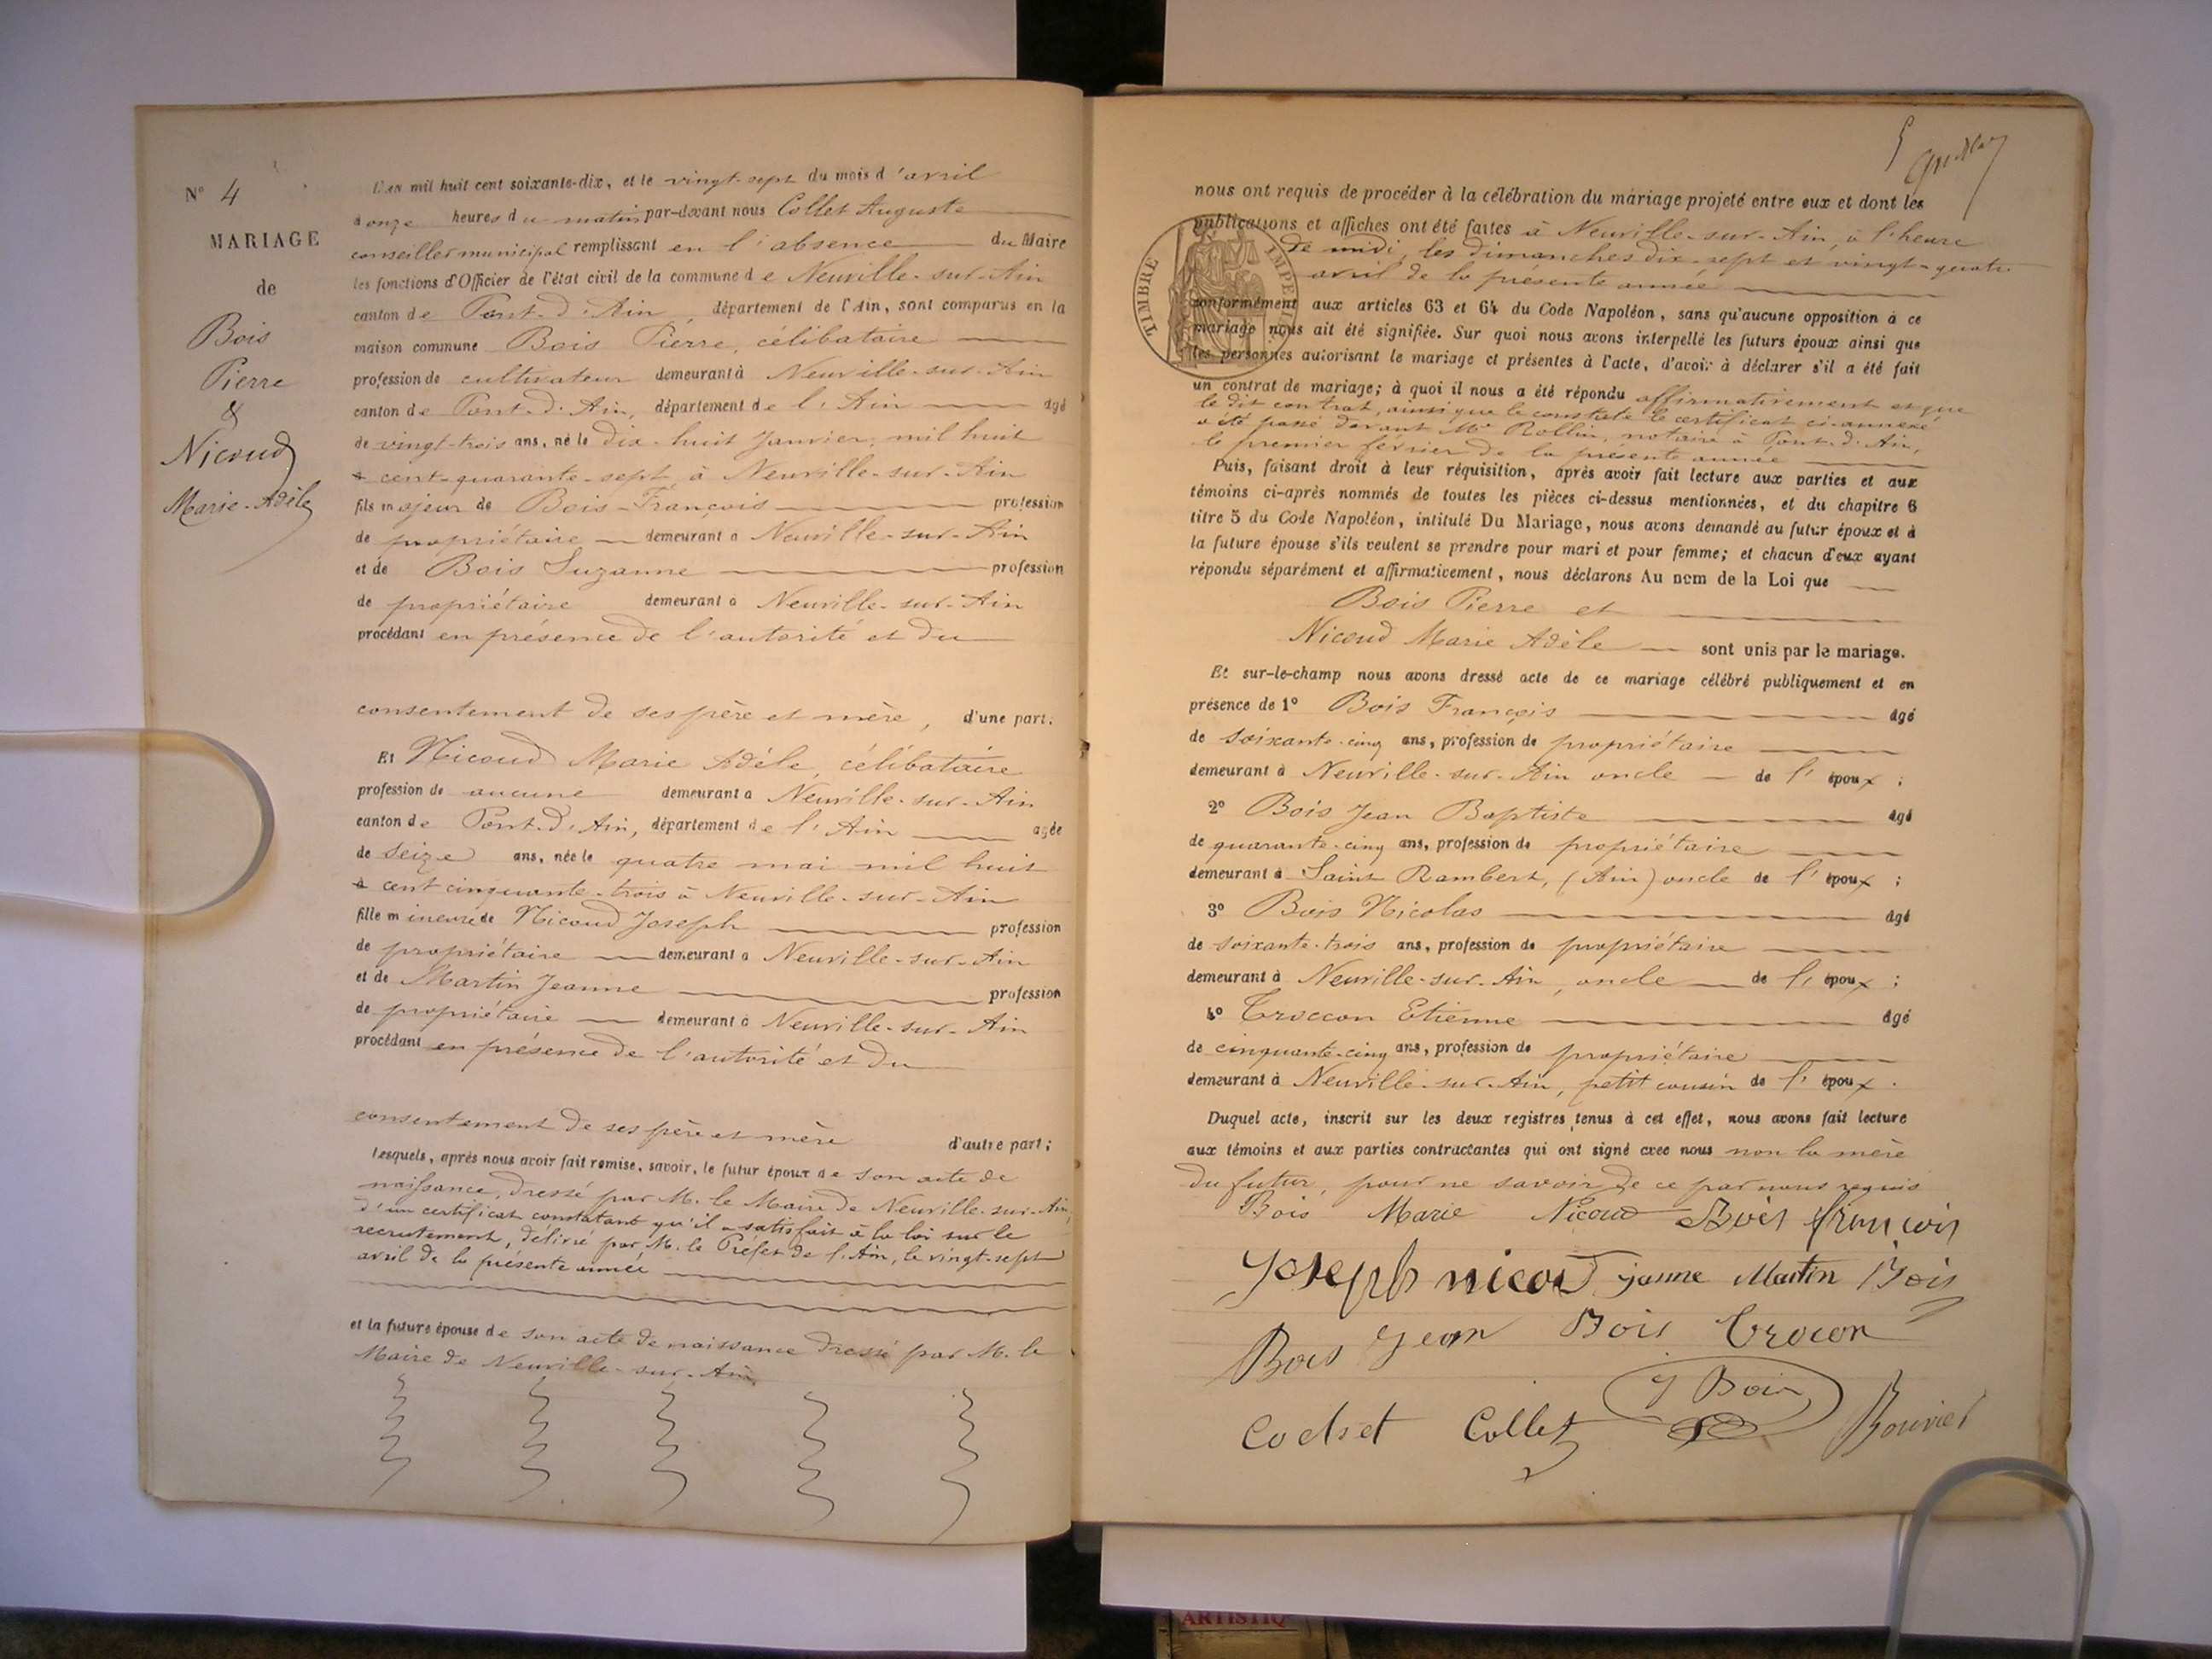 N° 4
MARIAGE
de
Bois
Pierre
&
Nicoud
Marie-Adèle
L'an mil huit cent soixante-dix, et le vingt-sept du mois d'avril
à onze heures du matin par-devant nous Collet Auguste
conseiller municipal remplissant en l'absence du Maire
les fonctions d'Officier de l'état civil de la commune de Neuville-sur-Ain
canton de Pont-d'Ain, département de l'Ain, sont comparus en la
maison commune Bois Pierre, célibataire
profession de cultivateur demeurant à Neuville-sur-Ain
canton de Pont-d'Ain, département de l'Ain âgé
de vingt-trois ans, né le dix-huit Janvier, mil huit
à cent-quarante-sept, à Neuville-sur-Ain
fils majeur de Bois François profession
de propriétaire demeurant à Neuville-sur-Ain
et de Bois Suzanne profession
de propriétaire demeurant à Neuville-sur-Ain
procédant en présence de l'autorité et du
consentement de ses père et mère, d'une part.
Et Nicoud Marie Adèle, célibataire
profession de aucune demeurant à Neuville-sur-Ain
canton de Pont-d'Ain, département de l'Ain agée
de seize ans, née le quatre mai mil huit
à cent cinquante-trois à Neuville-sur-Ain
fille mineure de Nicoud Joseph profession
de propriétaire demeurant à Neuville-sur-Ain
et de Martin Jeanne profession
de propriétaire demeurant à Neuville-sur-Ain
procédant en présence de l'autorité et du
consentement de ses père et mère d'autre part;
Lesquels, après nous avoir fait remise, savoir, le futur époux de son acte de
naissance, dressé par M. le Maire de Neuville-sur-Ain,
d'un certificat constatant qu'il a satisfait à la loi sur le
recrutement, délivré par M. le Préfet de l'Ain, le vingt-sept
avril de la présente année
et la future épouse de son acte de naissance dressé par M. le
Maire de Neuville-sur-Ain,
5
nous ont requis de procéder à la célébration du mariage projeté entre eux et dont les
publications et affiches ont été faites à Neuville-sur-Ain, à l'heure
de midi, les dimanches dix-sept et vingt-quatre
avril de la présente année
TIMBRE IMPERIAL
conformément aux articles 63 et 64 du Code Napoléon, sans qu'aucune opposition à ce
mariage nous ait été signifiée. Sur quoi nous avons interpellé les futurs époux ainsi que
les personnes autorisant le mariage et présentes à l'acte, d'avoir à déclarer s'il a été fait
un contrat de mariage; à quoi il nous a été répondu affirmativement et que
le dit contrat, ainsi que le constate le certificat ci-annexé
a été passé devant Me Rollin, notaire à Pont-d'Ain,
le premier février de la présente année
Puis, faisant droit à leur réquisition, après avoir fait lecture aux parties et aux
témoins ci-après nommés de toutes les pièces ci-dessus mentionnées, et du chapitre 6
titre 5 du Code Napoléon, intitulé Du Mariage, nous avons demandé au futur époux et à
la future épouse s'ils veulent se prendre pour mari et pour femme; et chacun d'eux ayant
répondu séparément et affirmativement, nous déclarons Au nom de la Loi que
Bois Pierre et
Nicoud Marie Adèle sont unis par le mariage.
Et sur-le-champ nous avons dressé acte de ce mariage célébré publiquement et en
présence de 1° Bois François âgé
de soixante-cinq ans, profession de propriétaire
demeurant à Neuville-sur-Ain oncle de l'époux;
2° Bois Jean Baptiste âgé
de quarante-cinq ans, profession de propriétaire
demeurant à Saint Rambert, (Ain) oncle de l'époux;
3° Bois Nicolas âgé
de soixante-trois ans, profession de propriétaire
demeurant à Neuville-sur-Ain, oncle de l'époux;
4° Troccon Etienne âgé
de cinquante-cinq ans, profession de propriétaire
demeurant à Neuville-sur-Ain, petit cousin de l'époux.
Duquel acte, inscrit sur les deux registres tenus à cet effet, nous avons fait lecture
aux témoins et aux parties contractantes qui ont signé avec nous non la mère
du futur, pour ne savoir de ce par nous requis
Bois Marie Nicoud Bois françois
Joseph nicod janne Martin Bois
Bois Jean Bois Trocon
Collet J Bois Bouvier
ARTISTIQ